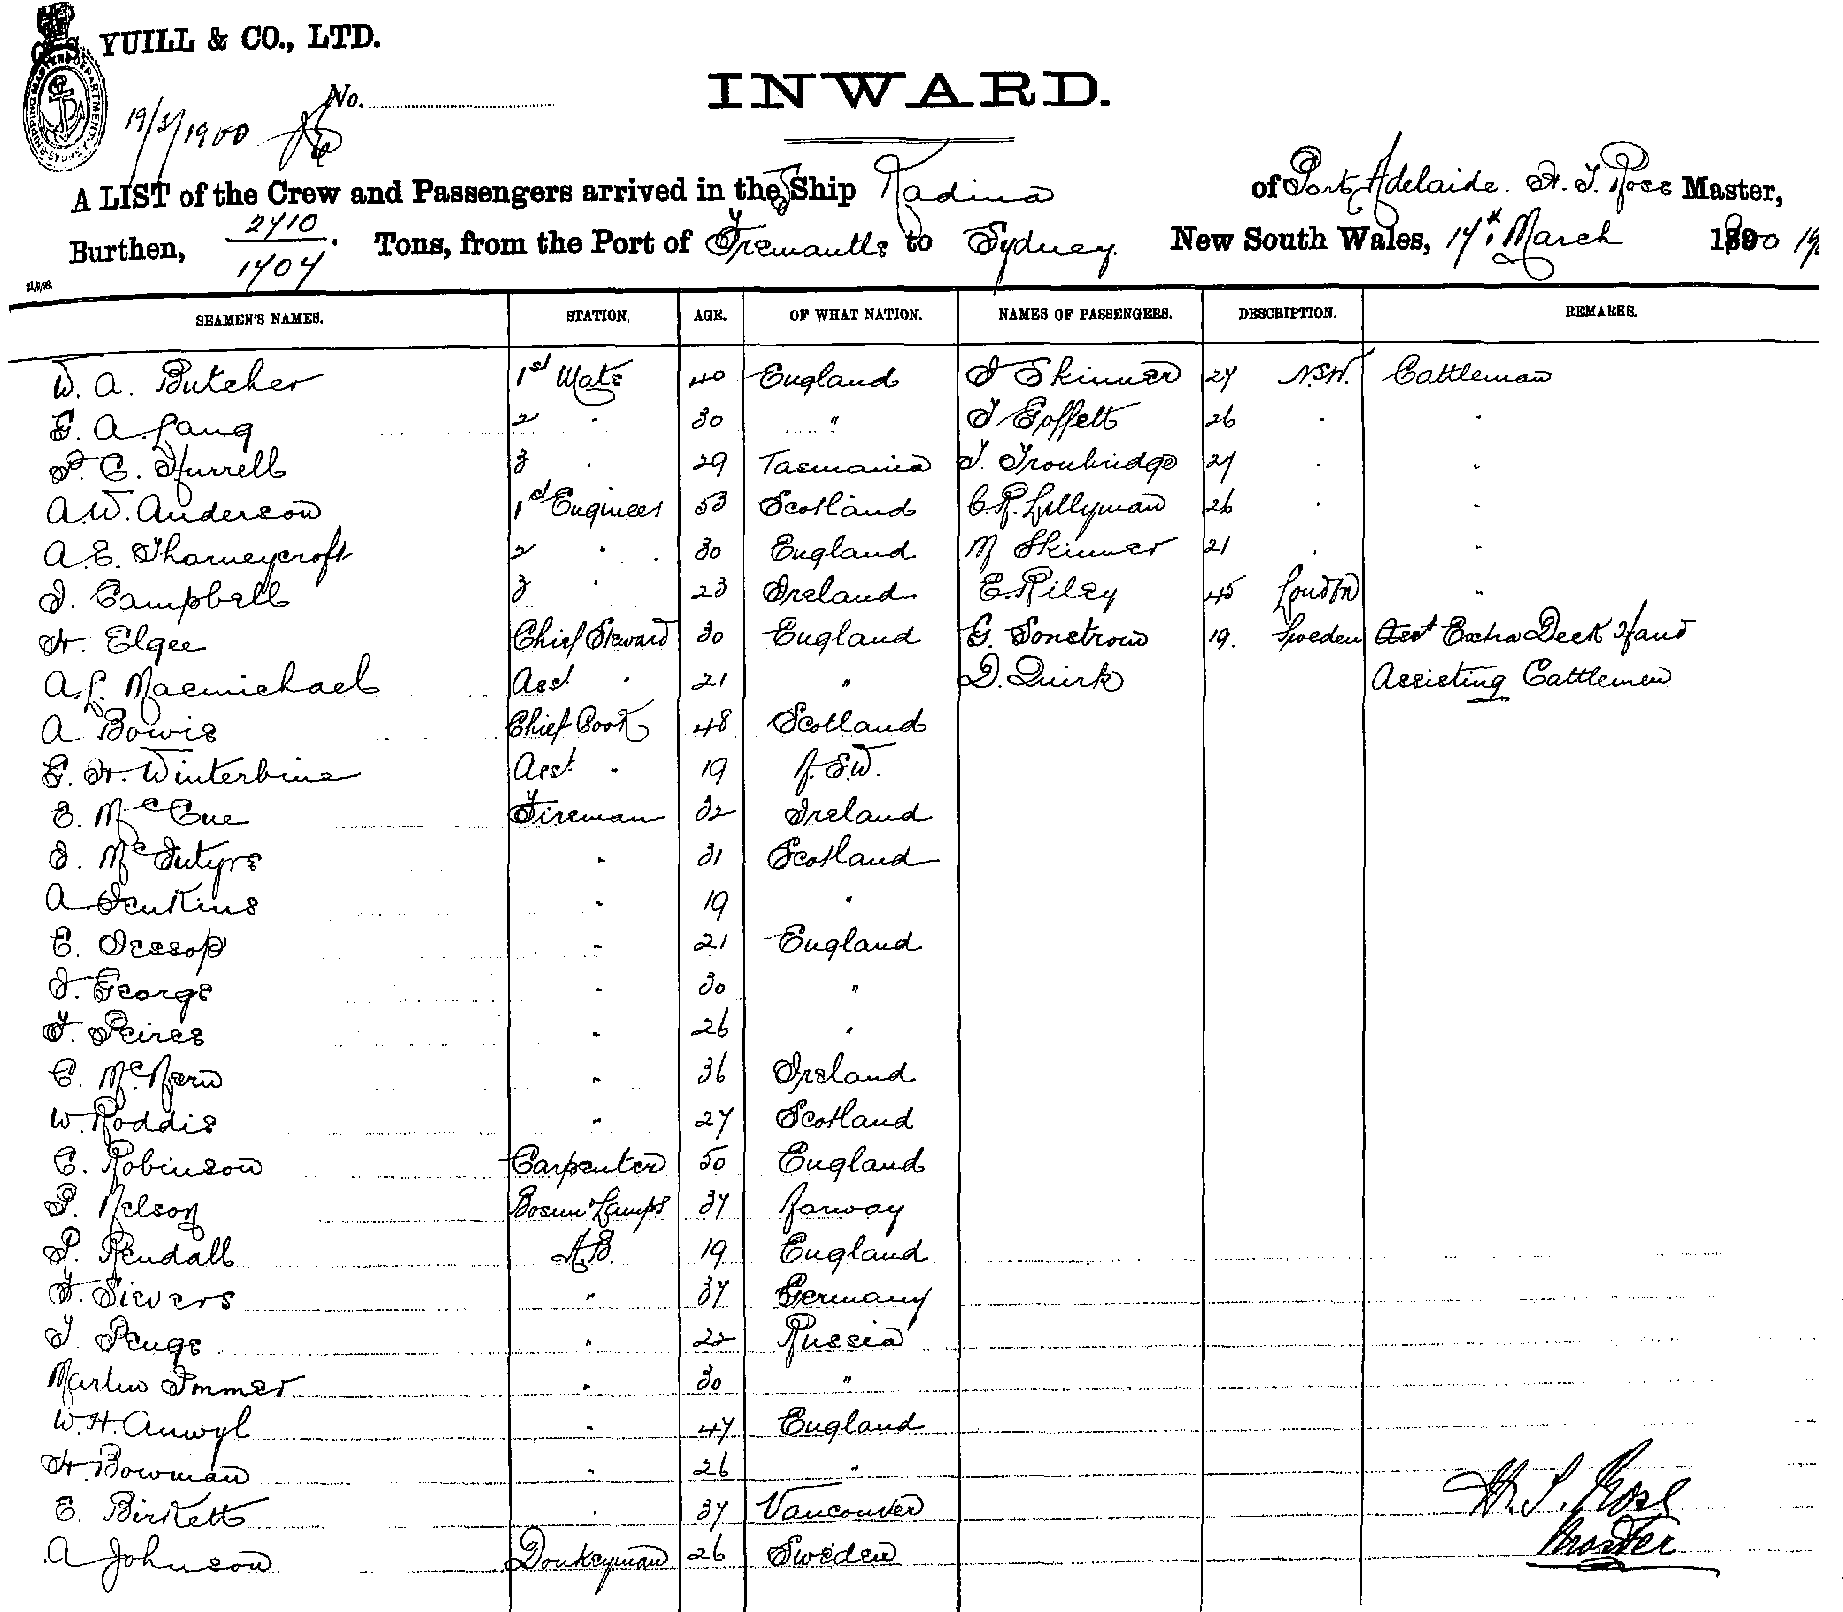 YUILL & CO., LTD.
No.
INWARD.
19/3/1900
A LIST of the Crew and Passengers arrived in the S Ship Kadina of Port Adelaide. H. T. Rose Master,
Burthen, 2710/1707 Tons, from the Port of Fremantle to Sydney New South Wales, 17th March 1900
SEAMEN'S NAMES. STATION. AGE. OF WHAT NATION. NAMES OF PASSENGERS. DESCRIPTION. REMARKS.
W. A. Butcher 1st Mate 40 England J Skinner 27 N.S.W. Cattleman
G. A. Lang 2 " 30 " T Goffett 26 " "
P. C. Hurrell 3 " 29 Tasmania T. Tronbridge 27 " "
A. W. Anderson 1st Engineer 53 Scotland C R. Lillyman 26 " "
A. E. Thorneycroft 2 " 30 England M Skinner 21 " "
J. Campbell 3 " 23 Ireland E. Riley 45 London "
H. Elgee Chief Steward 30 England G. Sonstrom 19. Sweden Extra Deck Hand
A. L. Macmichael Asst " 21 " D. Quirk Assisting Cattlemen
A Bowis Chief Cook 48 Scotland
G. H. Winterbine Asst " 19 N.S.W.
E. McCue Fireman 32 Ireland
J. McIntyre " 31 Scotland
A Jenkins " 19 "
E. Jessop " 21 England
J. George " 30 "
F. Peires " 26 "
C. McKern " 36 Ireland
W. Roddis " 27 Scotland
C. Robinson Carpenter 50 England
P. Nelson Bosun & Lamps 37 Norway
P. Kendall A.B. 19 England
F. Sievers " 37 Germany
T Penge " 22 Russia
Martin Immer " 30 "
W. H. Anwyl " 47 England
H. Bowman " 26 "
E. Birkett " 37 Vancouver
A Johnson Donkeyman 26 Sweden
H. T. Rose
Master